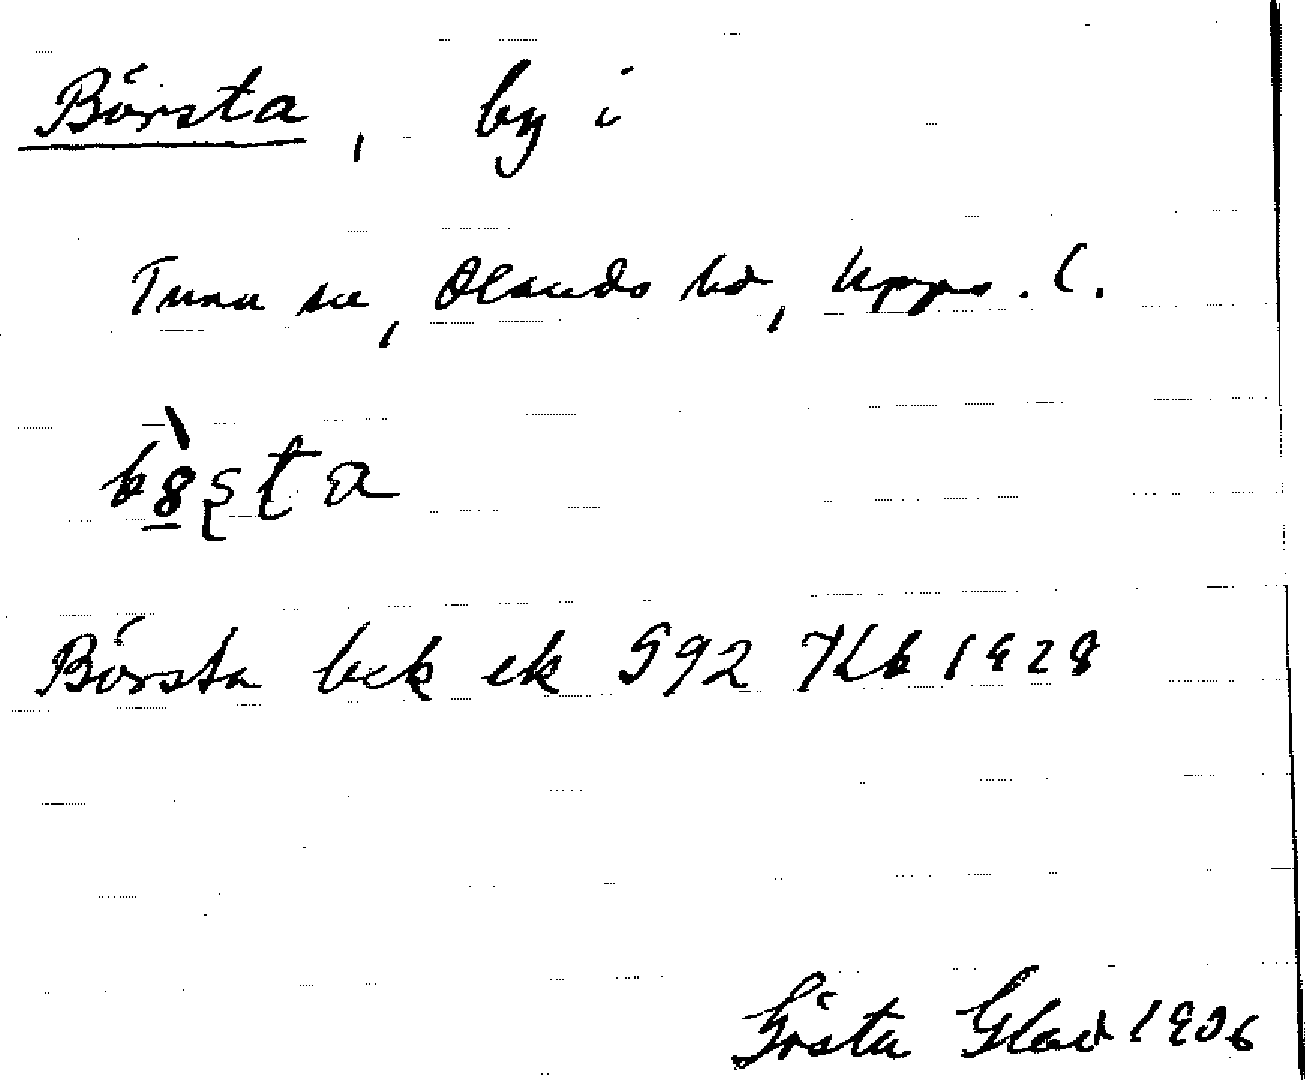 Börsta, by i
Tuna sn, Olands hd, Upps. l.
Börsta bek ek 592 Kb 1928
Gösta Glad 1906